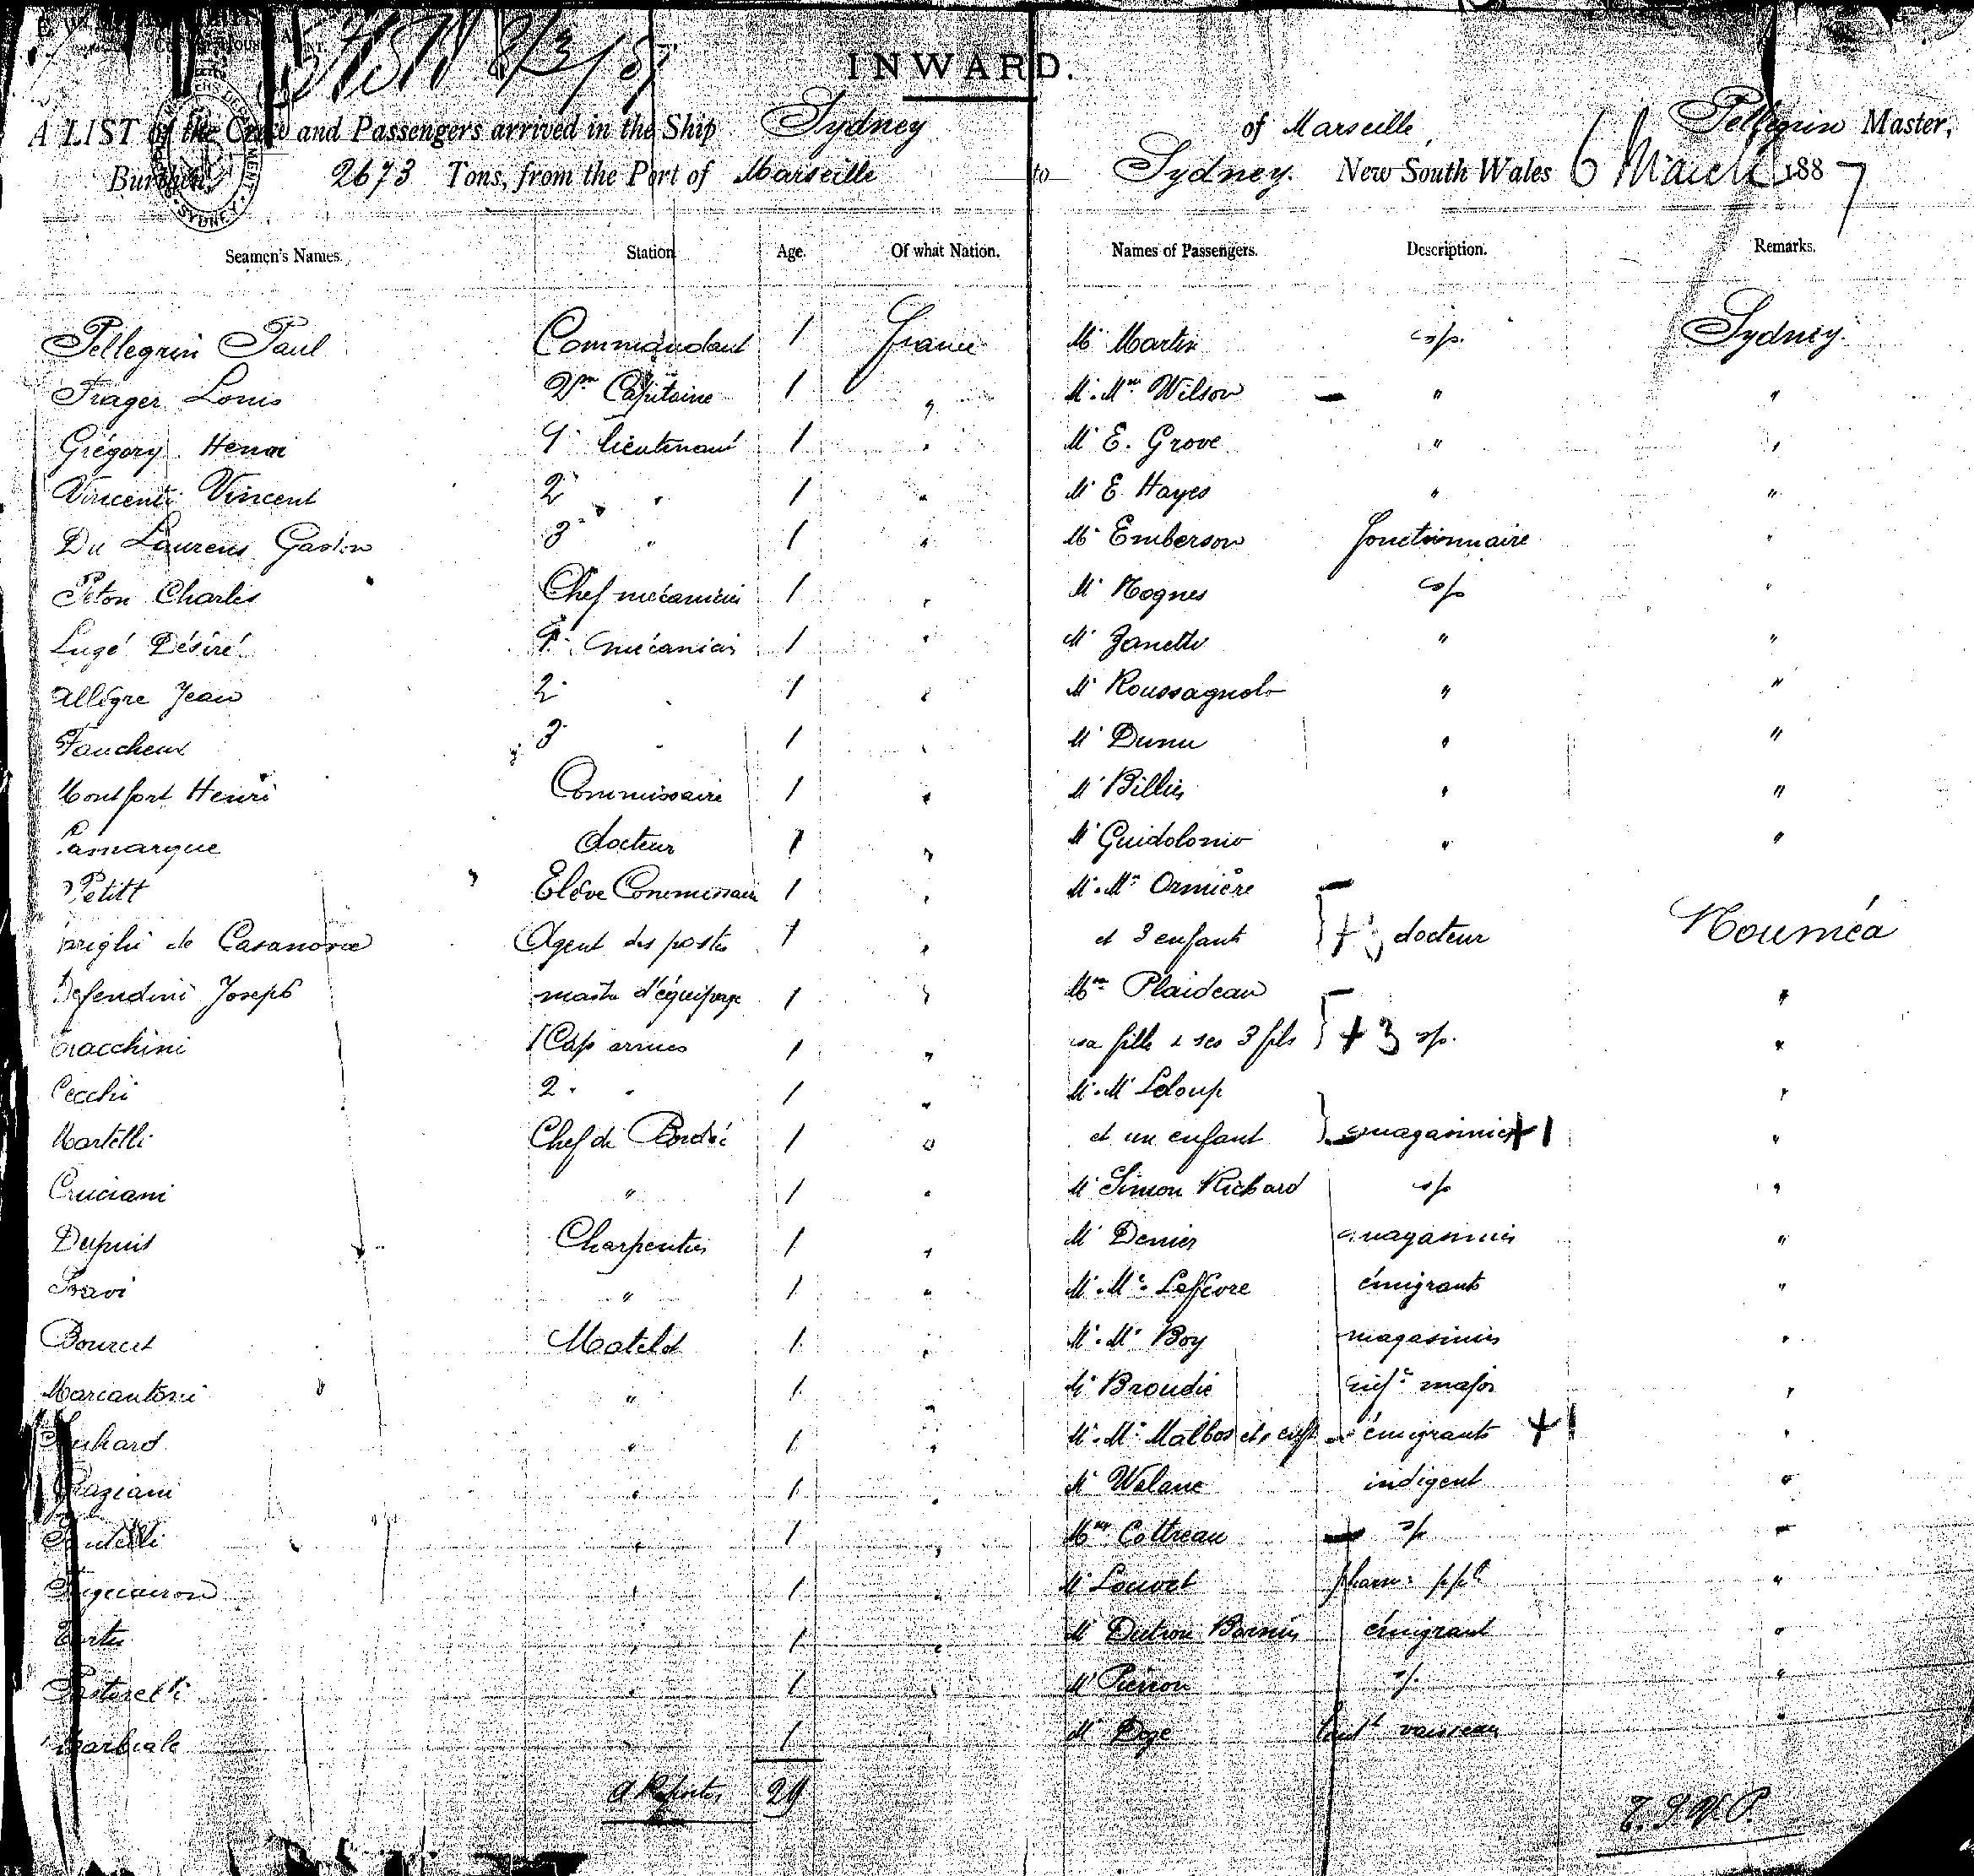 INWARD.
A LIST of the Crew and Passengers arrived in the Ship Sydney of Marseille, Pellegrin Master,
Burthen, 2673 Tons, from the Port of Marseille to Sydney. New South Wales 6 March 1887
SYDNEY
Seamen's Names. Station Age. Of what Nation. Names of Passengers. Description. Remarks.
Pellegrin Paul Commandant 1 France Mr Martin s/p. Sydney.
Frager Louis 2me Capitaine 1 " M. Mme Wilson " "
Grégory Henri 1r lieutenant 1 " Mr E. Grove " "
Vincenti Vincent 2 " 1 " Mr E. Hayes " "
Du Laurens Gaston 3 " 1 " Mr Emberson fonctionnaire "
Péton Charles Chef mécanicien 1 " Mr Nognes s/p "
Lugé Désiré 1r mécanicien 1 " Mr Zanetti " "
Allègre Jean 2 " 1 " Mr Roussagnol " "
Faucheux 3 " 1 " Mr Dunu " "
Montfort Henri Commissaire 1 " Mr Billier " "
Lamarque docteur 1 " Mr Guidolonio " "
Petitt Elève Commissaire 1 " M. Me Ormière
de Casanova Agent des postes 1 " et 3 enfants + 3 docteur Nouméa
Defendini Joseph maitre d'équipage 1 " Mme Plaideau "
Cap armes 1 " sa fille & ses 3 fils + 3 s/p. "
Cecchi 2 " 1 " M. Me Leloup "
Martelli Chef de Bordée 1 " et un enfant magasinier + 1 "
Cruciani " 1 " Mr Simon Richard s/p "
Dupuis Charpentier 1 " Mr Denier magasinier "
" 1 " M. Me Lefèvre émigrants "
Bourcet Matelot 1 " M. Me Boy magasinier "
Marcantoni " 1 " Mr Broudie major "
" 1 " M. Me Malbos et 1 enft émigrants + 1 "
Graziani " 1 " Mr Walane indigent "
" 1 " Mme Cottreau s/p "
" 1 " Mr Louvet pharm. ppl "
" 1 " Mr Dutron émigrant "
Pastorelli " 1 " Mr Pierron s/p. "
1 Mr Doge Lieut vaisseau "
A Reporter 29
T.S.V.P.